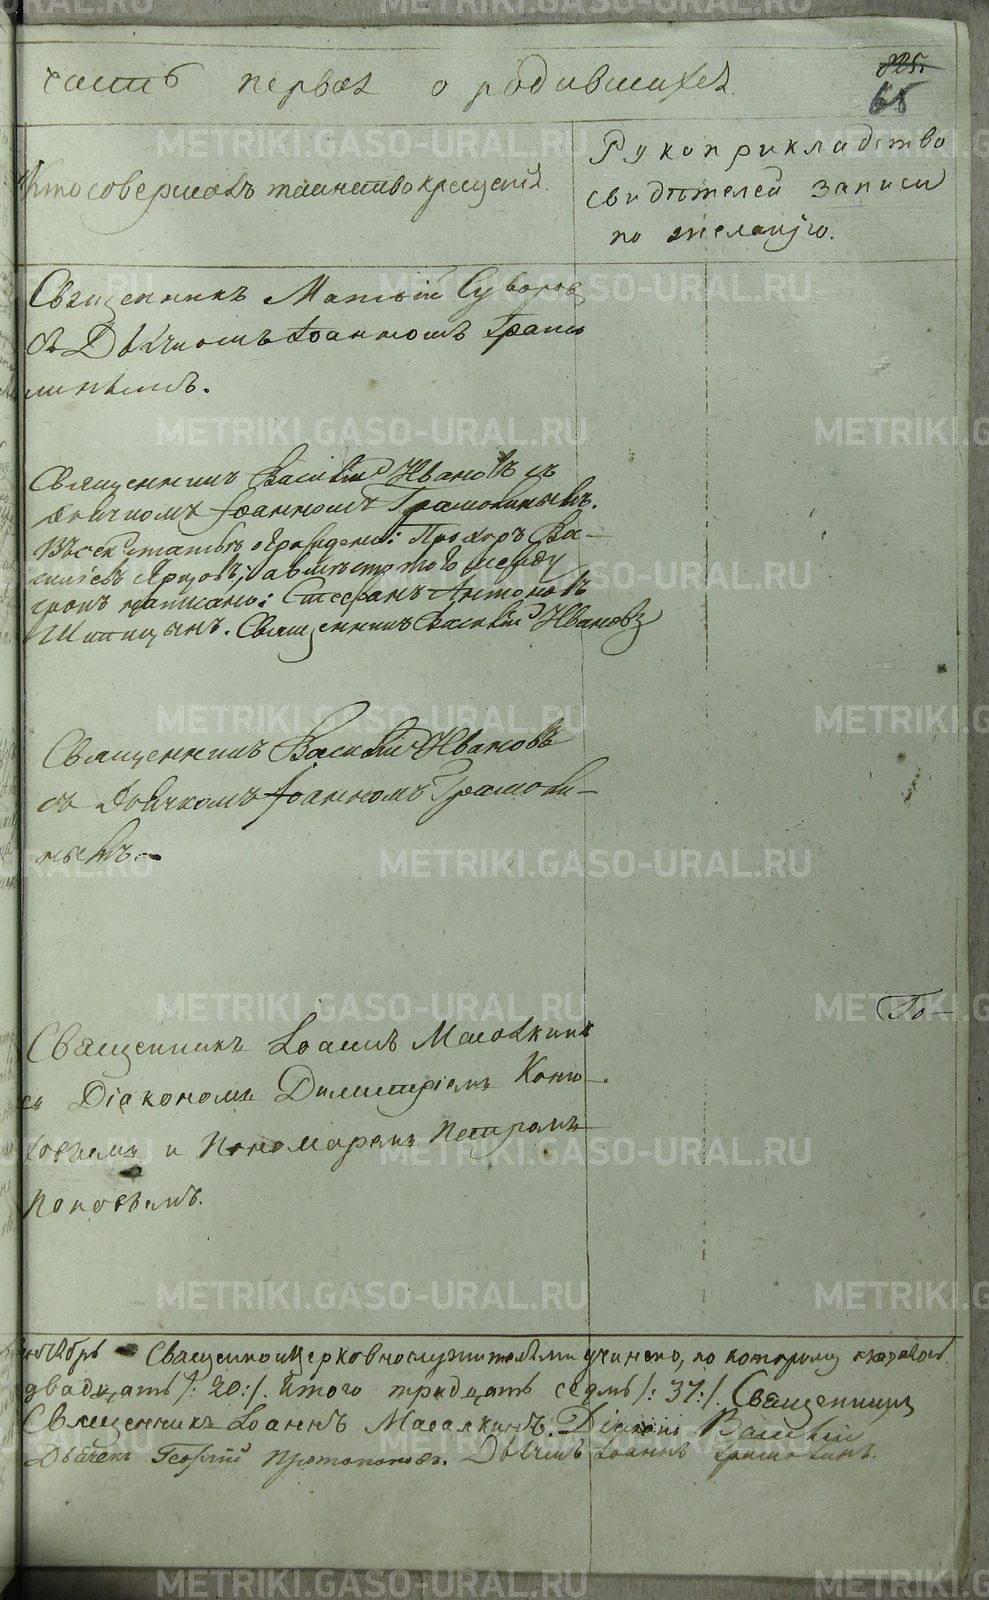 часть первая о родившихся
825.
65
Кто совершалъ таинство крещенія.
Рукоприкладство
свидѣтелей записи
по желанію.
Священникъ Матѳій Суворов
съ Дьячкомъ Іоанномъ Грамо
линымъ.
Священникъ Василій Ивановъ съ
дьячкомъ Іоанномъ Грамолинымъ.
Въ сей статьѣ Прохоръ Ва-
сильевъ вмѣсто того между
строкъ написано: Стефанъ Антоновъ
Шипицынъ. Священникъ Василій Ивановъ
Священникъ Василій Ивановъ
съ Дьячкомъ Іоанномъ Грамоли-
нымъ.
То-
Священникъ Іоаннъ Масалкинъ
съ Діакономъ Димитріемъ Коню-
ховымъ и Пономаремъ Петромъ
Поповымъ.
Священноицерковнослужителями учинено, по которому оказалось
двадцать /: 20:/. Итого тридцать седмь /: 37:/. Священникъ
Священникъ Іоаннъ Масалкинъ. Діаконъ Василій
Дьячекъ Георгій Протопоповъ. Дьячекъ Іоаннъ Грамолинъ.
METRIKI.GASO-URAL.RU